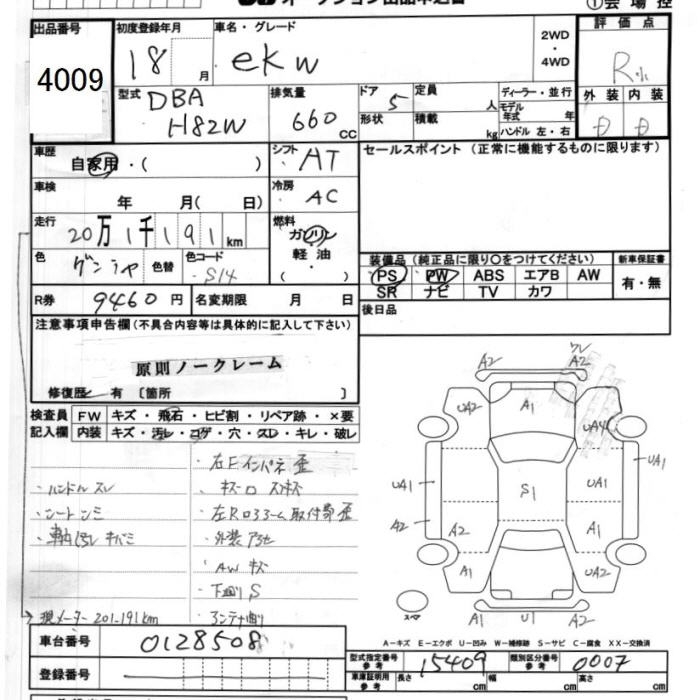 オークション出品申込書
①会場控
出品番号
4009
初度登録年月
18 月
車名・グレード
ekw
2WD
・
4WD
評価点
R
外装 内装
D D
型式
DBA
H82W
排気量
660 cc
ドア
5
形状
定員
人
積載
kg
ディーラー・並行
モデル年式 年
ハンドル 左・右
車歴
自家用・( )
シフト
AT
セールスポイント (正常に機能するものに限ります)
車検
年 月( 日)
冷房
AC
走行
20万1千191km
燃料
ガソリン
軽油
( )
色
色替
色コード
S14
装備品(純正品に限り○をつけてください)
PS PW ABS エアB AW
SR ナビ TV カワ
新車保証書
有・無
R券 9460円
名変期限 月 日
後日品
注意事項申告欄(不具合内容等は具体的に記入して下さい)
原則ノークレーム
修復歴 有 〔箇所 〕
検査員記入欄
FW キズ・飛石・ヒビ割・リペア跡・×要
内装 キズ・汚レ・コゲ・穴・スレ・キレ・破レ
・左Fインパネ歪
・ハンドルスレ
・シートシミ
・外装アセ
・AWキズ
・下廻りS
・アンテナ曲り
現メーター 201.191km
A2
A2
UA2
A1
UA4
UA1
UA1
UA1
S1
A2
A2
A1
A1
UA2
A1
U1
A2
スペア
A-キズ E-エクボ U-凹み W-補修跡 S-サビ C-腐食 XX-交換済
車台番号 0128508
登録番号
型式指定番号参考 15409
類別区分番号参考 0007
車庫証明用参考 長さ cm 幅 cm 高さ cm